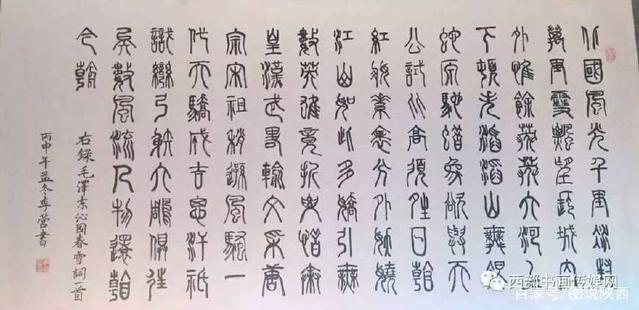 北國風光千里冰封
萬里雪飄望長城內
外惟餘莽莽大河上
下頓失滔滔山舞銀
蛇原馳蠟象欲與天
公試比高須晴日看
紅妝素裹分外妖嬈
江山如此多嬌引無
數英雄競折腰惜秦
皇漢武略輸文采唐
宗宋祖稍遜風騷一
代天驕成吉思汗祇
識彎弓射大雕俱往
矣數風流人物還看
今朝
右錄毛澤東沁園春雪詞一首
丙申年孟冬李營書
西部书画传媒网
百家号/图说陕西